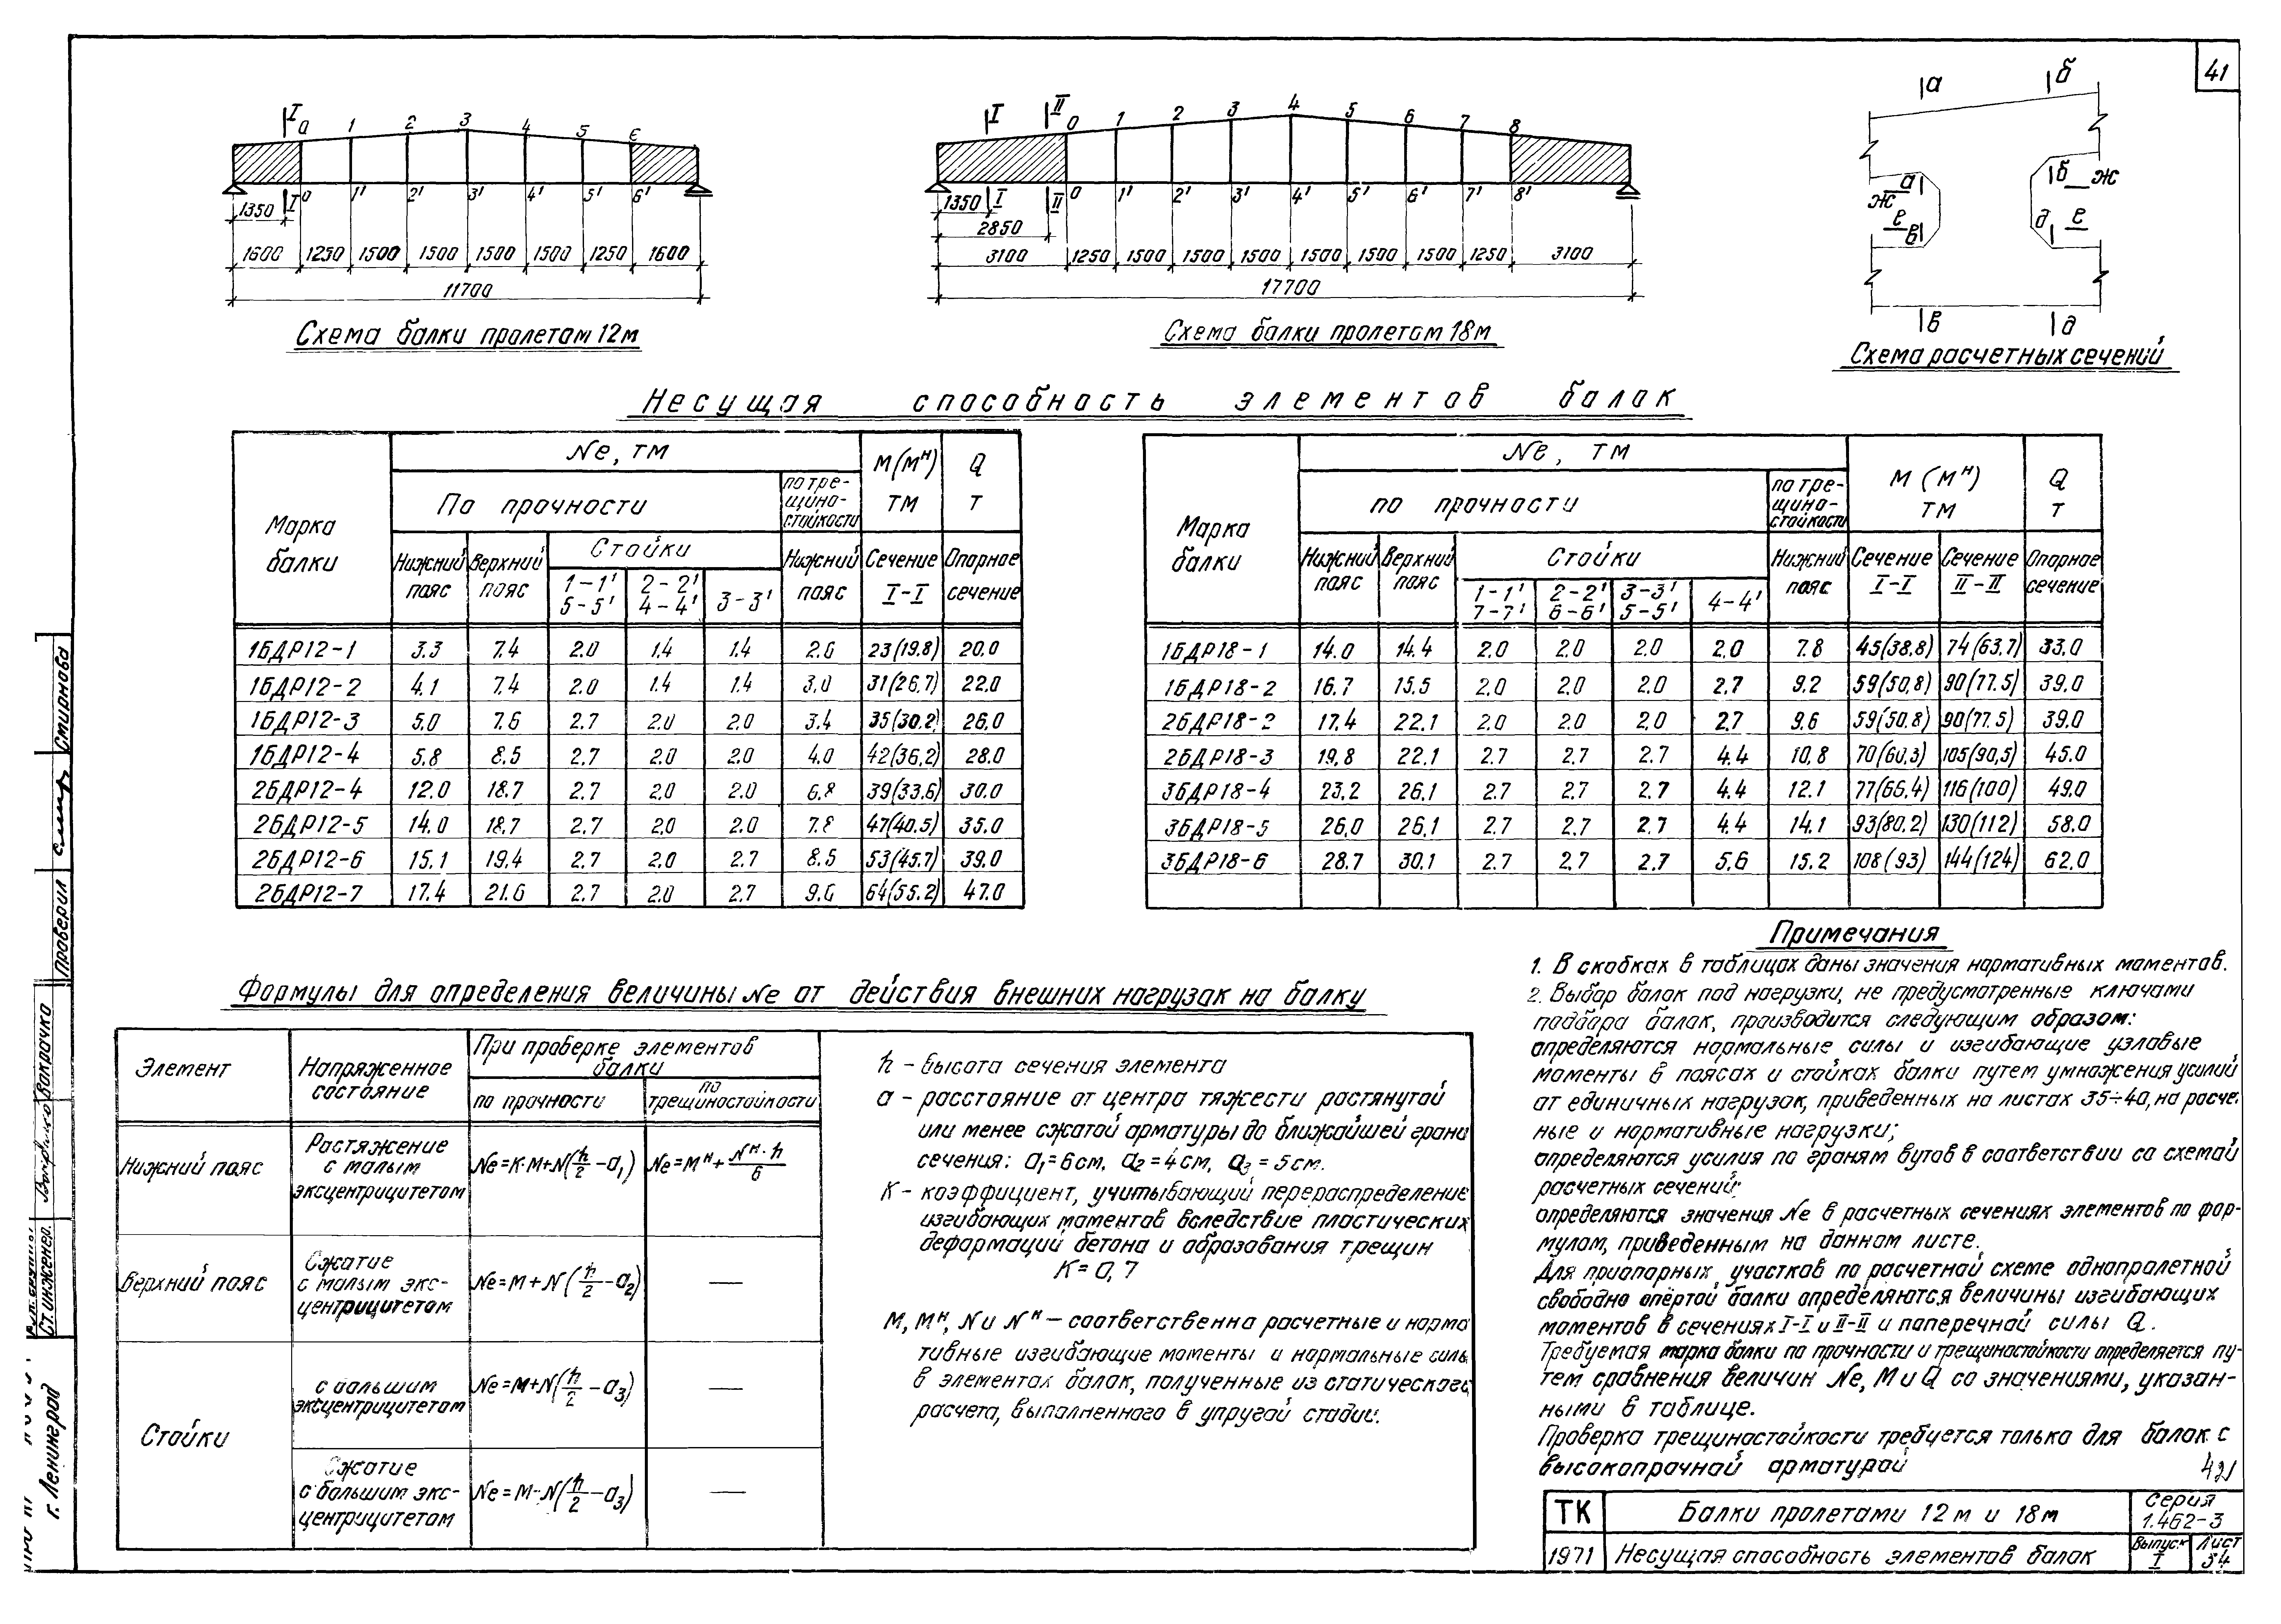 41
I а 1 2 3 4 5 6
I 0 1' 2' 3' 4' 5' 6'
1350
1600 1250 1500 1500 1500 1500 1250 1600
11700
Схема балки пролетом 12м
I II 0 1 2 3 4 5 6 7 8
I II 0 1' 2' 3' 4' 5' 6' 7' 8'
1350
2850
3100 1250 1500 1500 1500 1500 1500 1500 1250 3100
17700
Схема балки пролетом 18м
а б
а б ж
ж е в д е
в д
Схема расчетных сечений
Несущая способность элементов балок
Марка балки
Ne, тм
М(Мн) тм
Q т
По прочности
по трещиностойкости
Нижний пояс
Верхний пояс
Стойки
1-1' 5-5'
2-2' 4-4'
3-3'
Нижний пояс
Сечение I-I
Опорное сечение
1БДР12-1 3.3 7.4 2.0 1.4 1.4 2.6 23(19.8) 20.0
1БДР12-2 4.1 7.4 2.0 1.4 1.4 3.0 31(26.7) 22.0
1БДР12-3 5.0 7.6 2.7 2.0 2.0 3.4 35(30.2) 26.0
1БДР12-4 5.8 8.5 2.7 2.0 2.0 4.0 42(36,2) 28.0
2БДР12-4 12.0 18.7 2.7 2.0 2.0 6.8 39(33.6) 30.0
2БДР12-5 14.0 18.7 2.7 2.0 2.0 7.8 47(40.5) 35.0
2БДР12-6 15.1 19.4 2.7 2.0 2.7 8.5 53(45.7) 39.0
2БДР12-7 17.4 21.6 2.7 2.0 2.7 9.6 64(55.2) 47.0
Марка балки
Ne, тм
М (Мн) тм
Q т
по прочности
по трещиностойкости
Нижний пояс
Верхний пояс
Стойки
1-1' 7-7'
2-2' 6-6'
3-3' 5-5'
4-4'
Нижний пояс
Сечение I-I
Сечение II-II
Опорное сечение
1БДР18-1 14.0 14.4 2.0 2.0 2.0 2.0 7.8 45(38,8) 74(63,7) 33.0
1БДР18-2 16.7 15.5 2.0 2.0 2.0 2.7 9.2 59(50,8) 90(77.5) 39.0
2БДР18-2 17.4 22.1 2.0 2.0 2.0 2.7 9.6 59(50.8) 90(77.5) 39.0
2БДР18-3 19,8 22.1 2.7 2,7 2.7 4.4 10,8 70(60,3) 105(90,5) 45.0
3БДР18-4 23,2 26.1 2.7 2,7 2.7 4.4 12.1 77(66,4) 116(100) 49.0
3БДР18-5 26,0 26,1 2.7 2.7 2.7 4.4 14.1 93(80.2) 130(112) 58.0
3БДР18-6 28.7 30.1 2.7 2.7 2.7 5.6 15.2 108(93) 144(124) 62.0
Формулы для определения величины Ne от действия внешних нагрузок на балку
Элемент
Напряженное состояние
При проверке элементов балки
по прочности
по трещиностойкости
Нижний пояс
Растяжение с малым эксцентрицитетом
Ne=K·M+N(h/2-a1)
Ne=Mн+Nн·h/6
Верхний пояс
Сжатие с малым эксцентрицитетом
Ne=M+N(h/2-a2)
—
Стойки
с большим эксцентрицитетом
Ne=M+N(h/2-a3)
—
Сжатие с большим эксцентрицитетом
Ne=M-N(h/2-a3)
—
h - высота сечения элемента
a - расстояние от центра тяжести растянутой
или менее сжатой арматуры до ближайшей грани
сечения: a1=6см, a2=4см, a3=5см.
К - коэффициент, учитывающий перераспределение
изгибающих моментов вследствие пластических
деформаций бетона и образования трещин
К=0,7
М, Мн, N и Nн - соответственно расчетные и норма
тивные изгибающие моменты и нормальные силы
в элементах балок, полученные из статического
расчета, выполненного в упругой стадии.
Примечания
1. В скобках в таблицах даны значения нормативных моментов.
2. Выбор балок под нагрузки, не предусмотренные ключами
подбора балок, производится следующим образом:
определяются нормальные силы и изгибающие узловые
моменты в поясах и стойках балки путем умножения усилий
от единичных нагрузок, приведенных на листах 35÷40, на расчет
ные и нормативные нагрузки;
определяются усилия по граням вутов в соответствии со схемой
расчетных сечений;
определяются значения Ne в расчетных сечениях элементов по фор-
мулам, приведенным на данном листе.
Для приопорных участков по расчетной схеме однопролетной
свободно опёртой балки определяются величины изгибающих
моментов в сечениях I-I и II-II и поперечной силы Q.
Требуемая марка балки по прочности и трещиностойкости определяется пу-
тем сравнения величин Ne, М и Q со значениями, указан-
ными в таблице.
Проверка трещиностойкости требуется только для балок с
высокопрочной арматурой
ТК
1971
Балки пролетами 12м и 18м
Несущая способность элементов балок
Серия 1.462-3
Выпуск I
Лист 34
Смирнова
Проверил
Вакрачко
Ст. инженер.
г. Ленинград